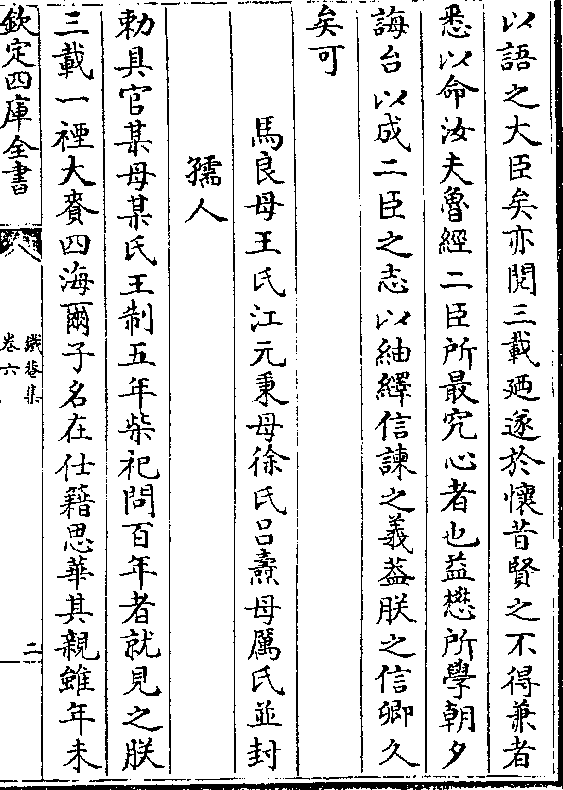 以語之大臣矣亦閱三載廼遂於懷昔賢之不得兼者
悉以命汝夫魯經二臣所最究心者也益懋所學朝夕
誨台以成二臣之志以紬繹信諫之義葢朕之信卿久
矣可
馬良母王氏江元秉母徐氏吕燾母厲氏並封
孺人
勅具官某母某氏王制五年柴祀問百年者就見之朕
三載一禋大賚四海爾子名在仕籍思華其親雖年未
欽定四庫全書
鐵菴集
卷六
二